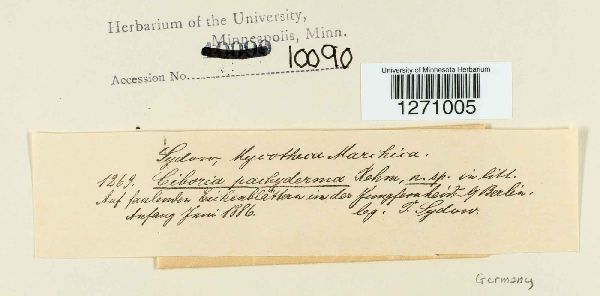 Herbarium of the University,
Minneapolis, Minn.
Accession No. 10090
University of Minnesota Herbarium
1271005
Sydow, Mycotheca Marchica.
1269. Ciboria pachyderma Rehm, n. sp. in litt.
Auf faulenden Eichenblättern in der Jungfernheide b/ Berlin.
Anfang Juni 1886. leg. P. Sydow.
Germany